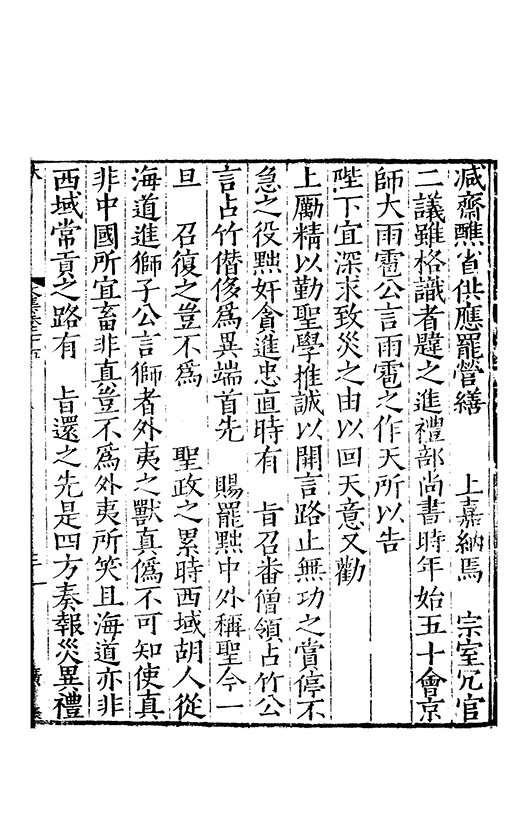 减齋醮省供應罷營繕　上嘉納焉　宗室冗官
二議雖格識者韙之進禮部尚書時年始五十會京
師大雨雹公言雨雹之作天所以告
陛下宜深求致災之由以回天意又勸
上勵精以勤聖學推誠以開言路止無功之賞停不
急之役黜奸貪進忠直時有　旨召番僧領占竹公
言占竹僭侈爲異端首先　賜罷黜中外稱聖今一
旦　召復之豈不爲　聖政之累時西域胡人從
海道進獅子公言獅者外夷之獸真僞不可知使真
非中國所宜畜非真豈不爲外夷所笑且海道亦非
西域常貢之路有　旨還之先是四方奏報災異禮